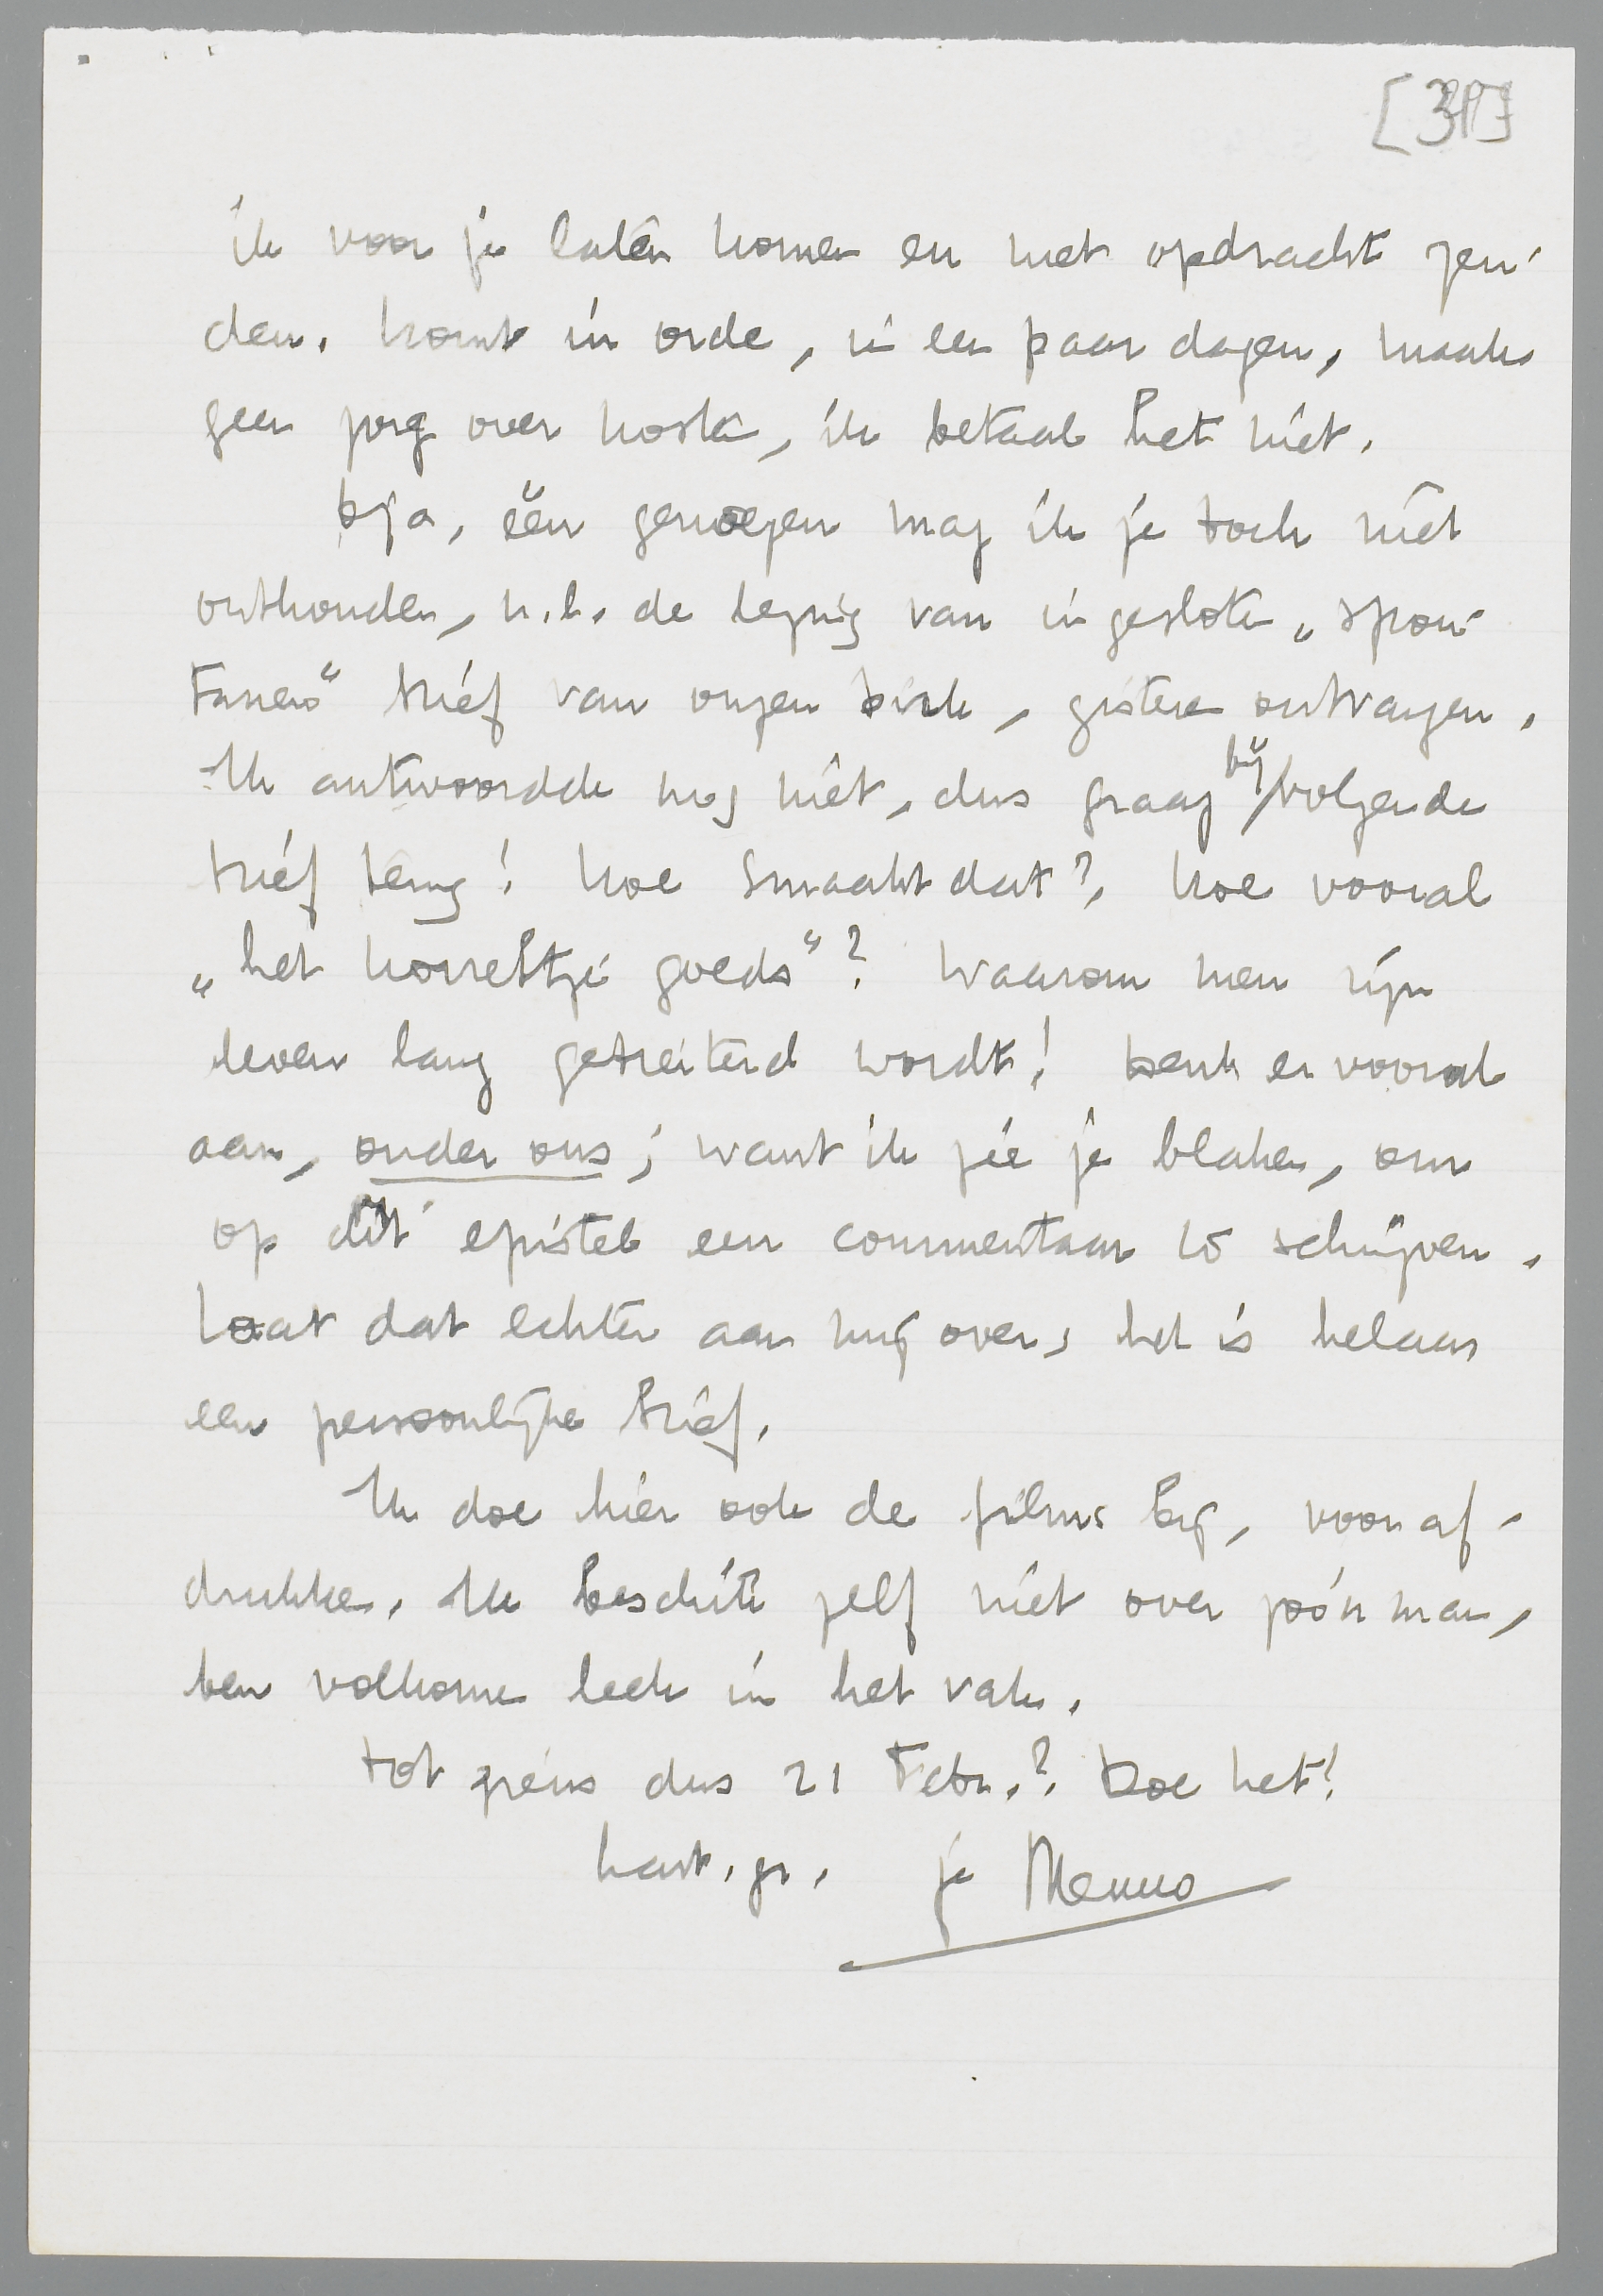 [31]
ik voor je laten komen en met opdracht zen-
den. Komt in orde, in een paar dagen, maak
geen zorg over kosten, ik betaal het niet.
Bja, één genoegen mag ik je toch niet
onthouden, n.l. de lezing van ingesloten „spon-
taneo" brief van onzen Dirk, gisteren ontvangen.
Ik antwoordde nog niet, dus graag bij volgende
brief terug! Hoe smaakt dat?, hoe vooral
„het korreltje goeds"? Waarom men zijn
leven lang getreiterd wordt! Denk er vooral
aan, onder ons; want ik zie je blaken, om
op dit epistel een commentaar te schrijven.
Laat dat echter aan mij over, het is helaas
een persoonlijke brief.
Ik doe hier ook de films bij, voor af-
drukken. Ik beschik zelf niet over zóó'n man,
ben volkomen leek in het vak.
Tot ziens dus 21 Febr.? Doe het!
hart. gr. je Menno